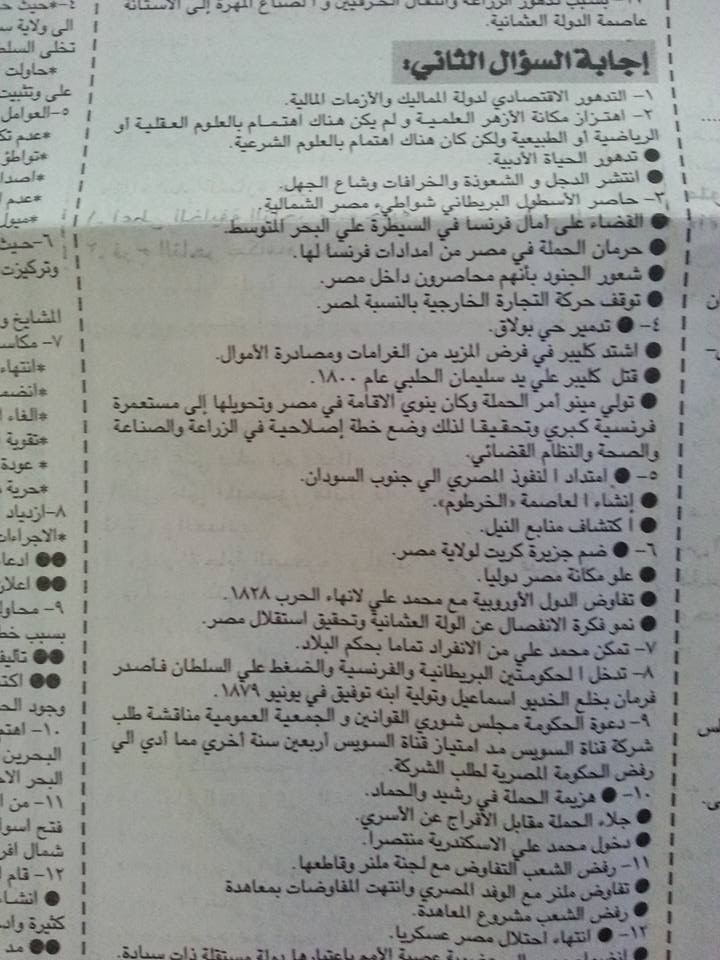 بسبب تدهور الزراعة وانتقال الحرفيين و الصناع المهرة إلى الآستانة
عاصمة الدولة العثمانية.
إجابة السؤال الثاني:
١- التدهور الاقتصادي لدولة المماليك والأزمات المالية.
٢- اهتزاز مكانة الأزهر العلمية و لم يكن هناك اهتمام بالعلوم العقلية أو
الرياضية أو الطبيعية ولكن كان هناك اهتمام بالعلوم الشرعية.
● تدهور الحياة الأدبية.
● انتشر الدجل و الشعوذة والخرافات وشاع الجهل.
٣- حاصر الأسطول البريطاني شواطيء مصر الشمالية.
● القضاء على أمال فرنسا في السيطرة علي البحر المتوسط.
● حرمان الحملة في مصر من امدادات فرنسا لها.
● شعور الجنود بأنهم محاصرون داخل مصر.
● توقف حركة التجارة الخارجية بالنسبة لمصر.
٤- ● تدمير حي بولاق.
● اشتد كليبر في فرض المزيد من الغرامات ومصادرة الأموال.
● قتل كليبر علي يد سليمان الحلبي عام ١٨٠٠.
● تولي مينو أمر الحملة وكان ينوي الاقامة في مصر وتحويلها إلى مستعمرة
فرنسية كبري وتحقيقا لذلك وضع خطة إصلاحية في الزراعة والصناعة
والصحة والنظام القضائي.
٥- ● امتداد النفوذ المصري الي جنوب السودان.
● إنشاء العاصمة «الخرطوم».
● اكتشاف منابع النيل.
٦- ● ضم جزيرة كريت لولاية مصر.
● علو مكانة مصر دوليا.
● تفاوض الدول الأوروبية مع محمد علي لانهاء الحرب ١٨٢٨.
● نمو فكرة الانفصال عن الولة العثمانية وتحقيق استقلال مصر.
٧- تمكن محمد علي من الانفراد تماما بحكم البلاد.
٨- تدخل الحكومتين البريطانية والفرنسية والضغط علي السلطان فأصدر
فرمان بخلع الخديو اسماعيل وتولية ابنه توفيق في يونيو ١٨٧٩.
٩- دعوة الحكومة مجلس شوري القوانين و الجمعية العمومية مناقشة طلب
شركة قناة السويس مد امتياز قناة السويس أربعين سنة أخري مما أدي الي
رفض الحكومة المصرية لطلب الشركة.
١٠- ● هزيمة الحملة في رشيد والحماد.
● جلاء الحملة مقابل الأفراج عن الأسري.
● دخول محمد علي الاسكندرية منتصرا.
١١- رفض الشعب التفاوض مع لجنة ملنر وقاطعها.
● تفاوض ملنر مع الوفد المصري وانتهت المفاوضات بمعاهدة
● رفض الشعب مشروع المعاهدة.
١٢- ● انتهاء احتلال مصر عسكريا.
عصبة الأمم باعتبارها دولة مستقلة ذات سيادة.
٤-*حيث
الى ولاية
تخلى
*حاولت
على وتثبيت
٥-العوامل
*عدم
*تواطؤ
*عدم
*ميول
٦-حيث
وتركيزت
المشايخ و
٧-
*انتهاء
*الغاء
*تقوية
* عودة
*حرية
٨-ازدياد
*الاجراءات
٩-
بسبب
وجود
١٠-
البحرين
البحر
١١- من
فتح
شمال
١٢- قام
كثيرة
●● مد